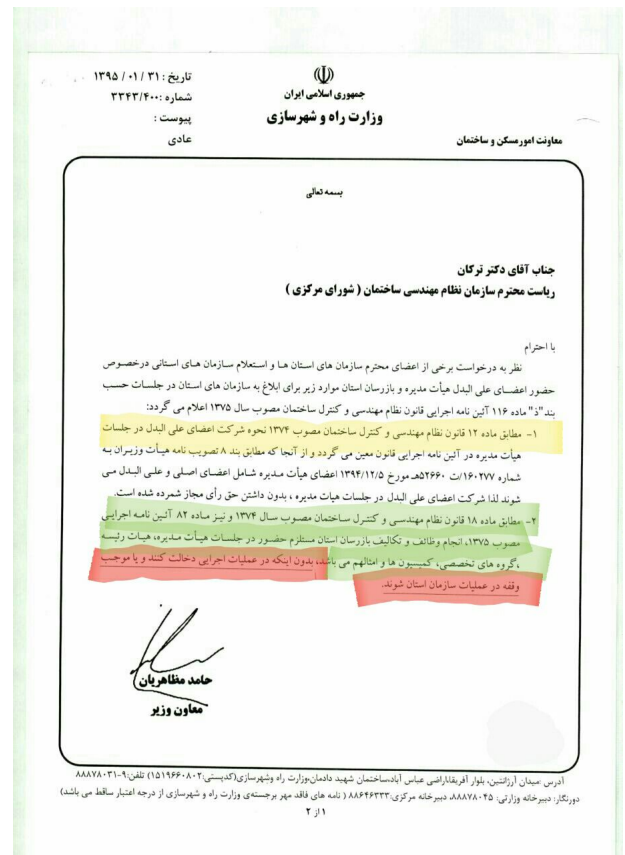 تاریخ : ۳۱ / ۰۱ / ۱۳۹۵
شماره : ۳۳۴۳/۴۰۰
پیوست :
عادی
جمهوری اسلامی ایران
وزارت راه و شهرسازی
معاونت امور مسکن و ساختمان
بسمه تعالی
جناب آقای دکتر ترکان
ریاست محترم سازمان نظام مهندسی ساختمان ( شورای مرکزی )
با احترام
نظر به درخواست برخی از اعضای محترم سازمان های استان ها و استعلام سازمان های استانی درخصوص
حضور اعضای علی البدل هیأت مدیره و بازرسان استان موارد زیر برای ابلاغ به سازمان های استان در جلسات حسب
بند "ذ" ماده ۱۱۶ آئین نامه اجرایی قانون نظام مهندسی و کنترل ساختمان مصوب سال ۱۳۷۵ اعلام می گردد:
۱- مطابق ماده ۱۲ قانون نظام مهندسی و کنترل ساختمان مصوب ۱۳۷۴ نحوه شرکت اعضای علی البدل در جلسات
هیأت مدیره در آئین نامه اجرایی قانون معین می گردد و از آنجا که مطابق بند ۸ تصویب نامه هیأت وزیران به
شماره ۱۶۰۲۷۷/ت ۵۲۶۶۰هـ مورخ ۱۳۹۴/۱۲/۵ اعضای هیأت مدیره شامل اعضای اصلی و علی البدل می
شوند لذا شرکت اعضای علی البدل در جلسات هیات مدیره ، بدون داشتن حق رأی مجاز شمرده شده است.
۲- مطابق ماده ۱۸ قانون نظام مهندسی و کنترل ساختمان مصوب سال ۱۳۷۴ و نیز ماده ۸۲ آئین نامه اجرایی
مصوب ۱۳۷۵، انجام وظائف و تکالیف بازرسان استان مستلزم حضور در جلسات هیأت مدیره، هیات رئیسه
،گروه های تخصصی، کمیسیون ها و امثالهم می باشد، بدون اینکه در عملیات اجرایی دخالت کنند و یا موجب
وقفه در عملیات سازمان استان شوند.
حامد مظاهریان
معاون وزیر
آدرس :میدان آرژانتین، بلوار آفریقا،اراضی عباس آباد،ساختمان شهید دادمان،وزارت راه وشهرسازی(کدپستی:۱۵۱۹۶۶۰۸۰۲) تلفن:۹-۸۸۸۷۸۰۳۱
دورنگار: دبیرخانه وزارتی: ۸۸۸۷۸۰۴۵، دبیرخانه مرکزی:۸۸۶۴۶۳۳۳ ( نامه های فاقد مهر برجسته‌ی وزارت راه و شهرسازی از درجه اعتبار ساقط می باشد)
۱ از ۲